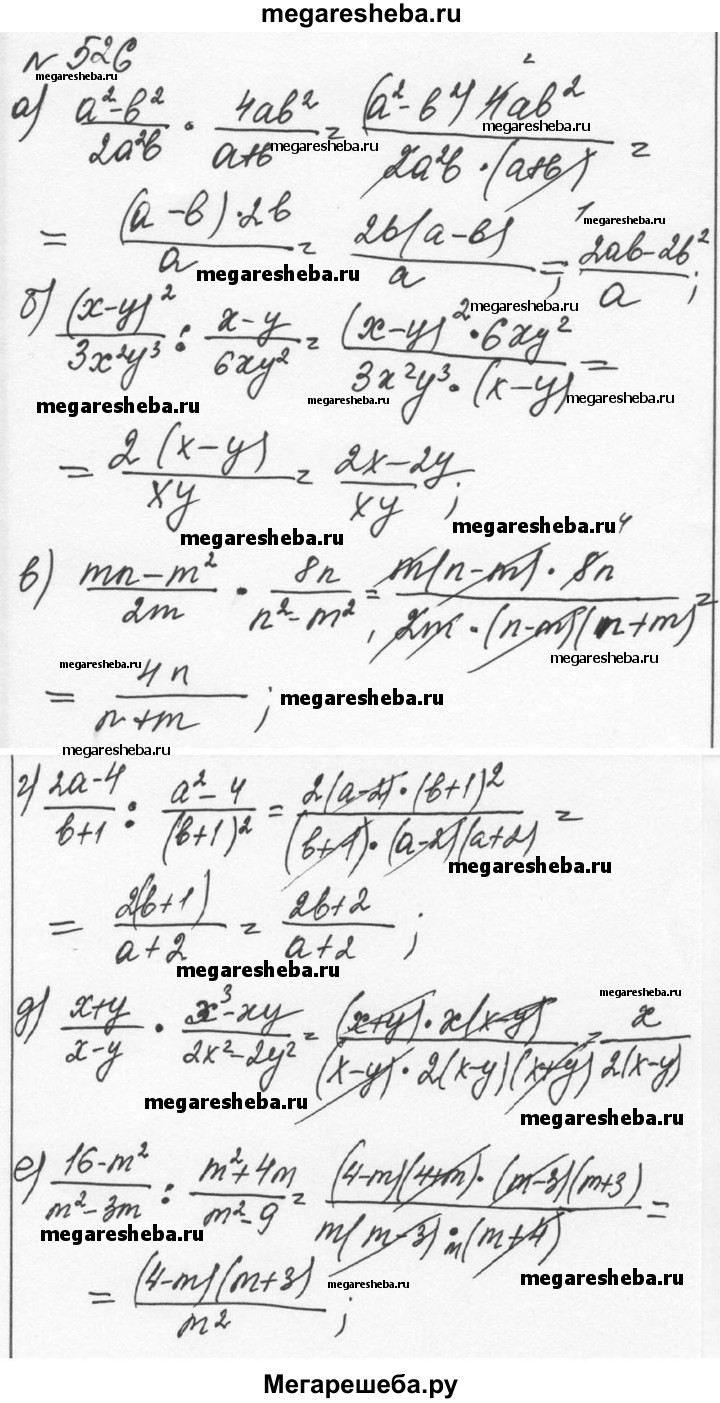 megaresheba.ru
№ 526
megaresheba.ru
а) (a²-b²)/(2a²b) · (4ab²)/(a+b) = ((a²-b²) 4ab²)/(2a²b · (a+b)) =
megaresheba.ru
megaresheba.ru
megaresheba.ru
= ((a-b)·2b)/a = (2b(a-b))/a = (2ab-2b²)/a ;
megaresheba.ru
megaresheba.ru
б) (x-y)²/(3x²y³) : (x-y)/(6xy²) = ((x-y)²·6xy²)/(3x²y³·(x-y)) =
megaresheba.ru
megaresheba.ru
megaresheba.ru
= (2(x-y))/(xy) = (2x-2y)/(xy) ;
megaresheba.ru
megaresheba.ru
в) (mn-m²)/(2m) · (8n)/(n²-m²) = (m(n-m)·8n)/(2m·(n-m)(n+m)) =
megaresheba.ru
megaresheba.ru
= (4n)/(n+m) ;
megaresheba.ru
megaresheba.ru
г) (2a-4)/(b+1) : (a²-4)/(b+1)² = (2(a-2)·(b+1)²)/((b+1)·(a-2)(a+2)) =
megaresheba.ru
= (2(b+1))/(a+2) = (2b+2)/(a+2) ;
megaresheba.ru
megaresheba.ru
д) (x+y)/(x-y) · (x³-xy)/(2x²-2y²) = ((x+y)·x(x-y))/((x-y)·2(x-y)(x+y)) = x/(2(x-y))
megaresheba.ru
megaresheba.ru
е) (16-m²)/(m²-3m) : (m²+4m)/(m²-9) = ((4-m)(4+m)·(m-3)(m+3))/(m(m-3)·m(m+4)) =
megaresheba.ru
= ((4-m)(m+3))/m² ;
megaresheba.ru
megaresheba.ru
Мегарешеба.ру